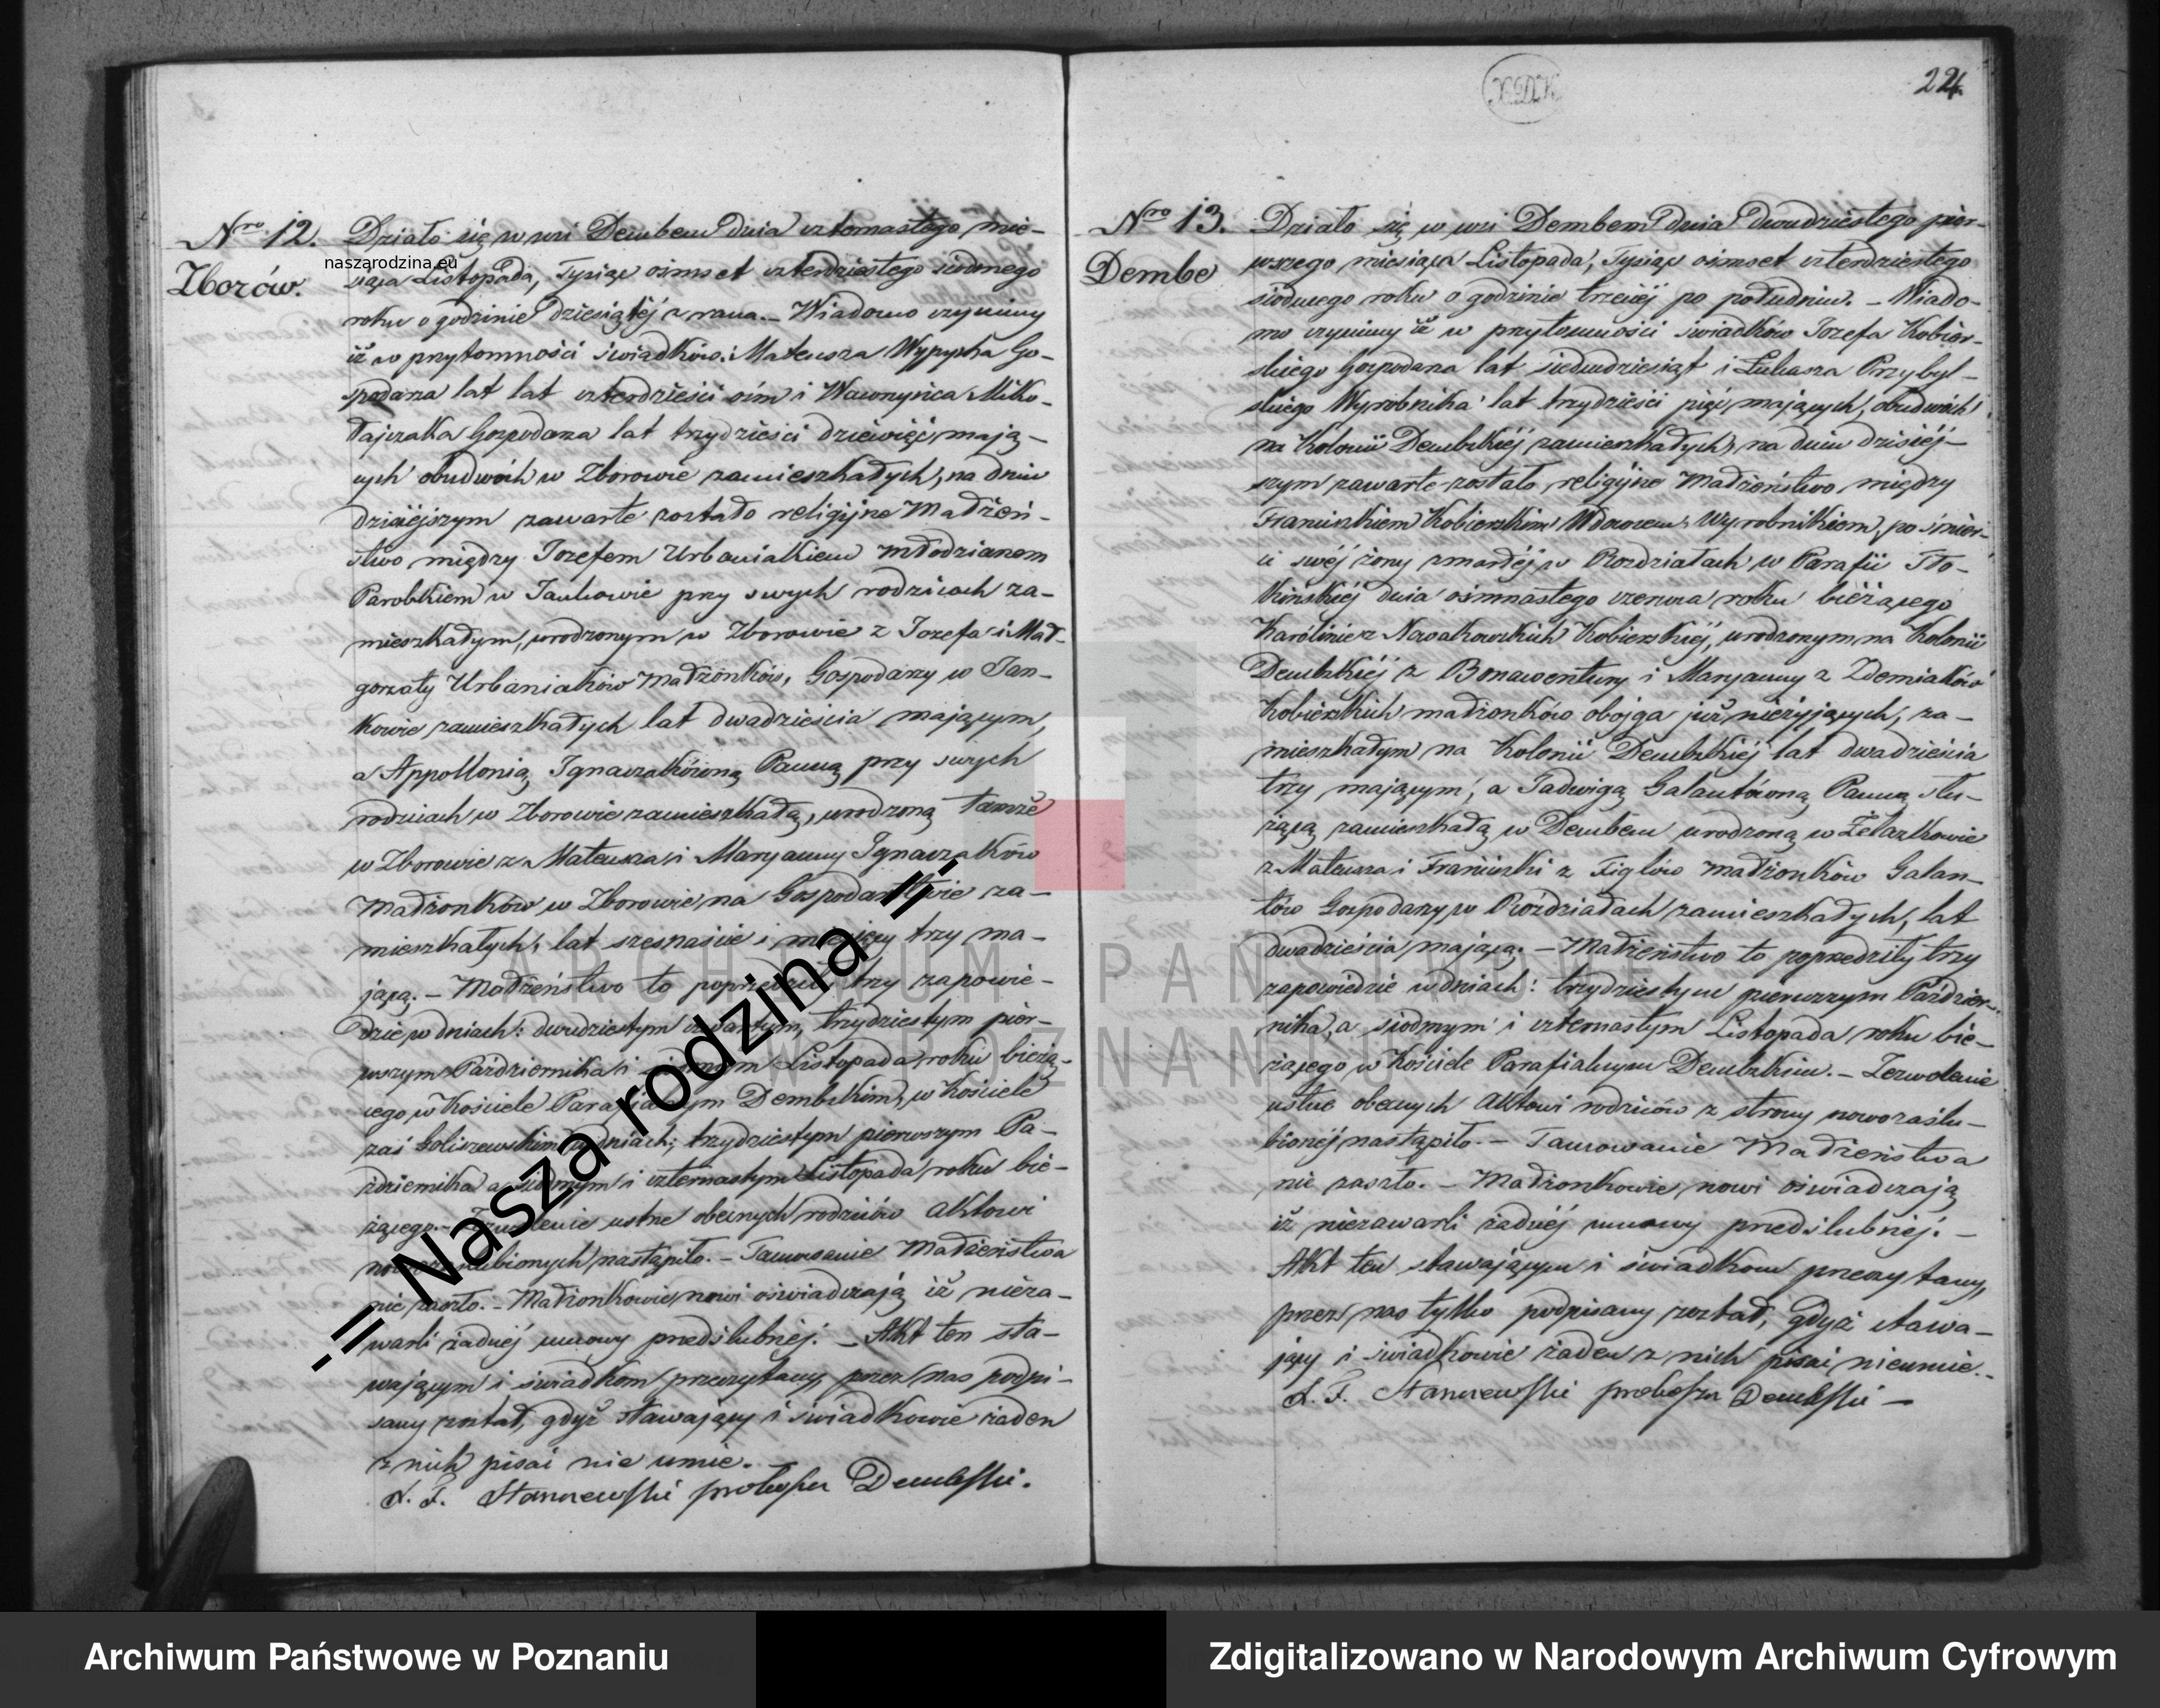 Nro 12.
Zborów.
Działo się w wsi Dembem dnia czternastego mie-
siąca Listopada, Tysiąc ośmset czterdziestego siódmego
roku o godzinie dziesiątéj z rana. – Wiadomo czynimy
iż w przytomności świadków: Mateusza Wypycha Go-
spodarza lat lat czterdzieści ośm i Wawrzyńca Miko-
łajczaka Gospodarza lat trzydzieści dziewięć mają-
cych obudwóch w Zborowie zamieszkałych, na dniu
dzisiéjszym zawarte zostało religijne Małżeń-
stwo między Jozefem Urbaniakiem młodzianem
Parobkiem w Jankowie przy swych rodzicach za-
mieszkałym, urodzonym w Zborowie z Jozefa i Mał-
gorzaty Urbaniaków małżonków, Gospodarzy w Jan-
kowie zamieszkałych lat dwadzieścia mającym,
a Appollonią Ignaczakówną Panną przy swych
rodzicach w Zborowie zamieszkałą, urodzoną tamże
w Zborowie z Mateusza i Maryanny Ignaczaków
Małżonków w Zborowie na Gospodarstwie za-
mieszkałych, lat szesnaście i miesięcy trzy ma-
jącą. – Małżeństwo to poprzedziły trzy zapowie-
dzie w dniach: dwudziestym czwartym, trzydziestym pier-
wszym Października i siódmym Listopada roku bieżą-
cego w Kościele Parafialnym Dembskim, w Kościele
zaś Goliszewskim w dniach; trzydziestym pierwszym Pa-
ździernika a siódmym i czternastym Listopada roku bie-
żącego. – Zezwolenie ustne obecnych rodziców aktowi
nowozaślubionych nastąpiło. – Tamowanie Małżeństwa
nie zaszło. – Małżonkowie nowi oświadczają iż nieza-
warli żadnéj umowy przedślubnéj. – Akt ten sta-
wającym i świadkom przeczytany, przez nas podpi-
sany został, gdyż stawający i świadkowie żaden
z nich pisać nie umie.
X. F. Stanczewski proboszcz Dembski.
224
X.D.K
Nro 13.
Dembe
Działo się w wsi Dembem dnia Dwudziestego pier-
wszego miesiąca Listopada, Tysiąc ośmset czterdziestego
siódmego roku o godzinie trzeciéj po południu. – Wiado-
mo czynimy iż w przytomności świadków Jozefa Kobier-
skiego Gospodarza lat siedmdziesiąt i Łukasza Przybyl-
skiego Wyrobnika lat trzydzieści pięć mających, obudwóch
na Kolonii Dembskiéj zamieszkałych, na dniu dzisiéj-
szym zawarte zostało religijne Małżeństwo między
Franciszkiem Kobierskim Wdowcem, Wyrobnikiem, po śmier-
ci swéj żony zmarłéj w Rozdziałach w Parafii Tło-
kińskiéj dnia ośmnastego czerwca roku bieżącego
Karoliniez Nowakowskich Kobierskiéj, urodzonym na Kolonii
Dembskiéj z Bonawentury i Maryanny z Zdemiaków
Kobierskich małżonków obojga już nieżyjących, za-
mieszkałym na Kolonii Dembskiéj lat dwadzieścia
trzy mającym, a Jadwigą Galantówną Panną słu-
żącą zamieszkałą w Dembem urodzoną w Żelazkowie
z Mateusza i Franciszki z Figlów małżonków Galan-
tów Gospodarzy w Roździałach zamieszkałych, lat
dwadzieścia mającą. – Małżeństwo to poprzedziły trzy
zapowiedzie w dniach: trzydziestym pierwszym Paździer-
nika, a siódmym i czternastym Listopada roku bie-
żącego w Kościele Parafialnym Dembskim. – Zezwolenie
ustne obecnych aktowi rodziców z strony nowozaślu-
bionéj nastąpiło. – Tamowanie Małżeństwa
nie zaszło. – Małżonkowie nowi oświadczają
iż niezawarli żadnéj umowy przedślubnéj. –
Akt ten stawającym i świadkom przeczytany,
przez nas tylko podpisany został, gdyż stawa-
jący i świadkowie żaden z nich pisać nieumie. –
X. F. Stanczewski proboszcz Dembski –
naszarodzina.eu
.:|| Nasza rodzina ||:.
ARCHIWUM PAŃSTWOWE
W POZNANIU
Archiwum Państwowe w Poznaniu
Zdigitalizowano w Narodowym Archiwum Cyfrowym